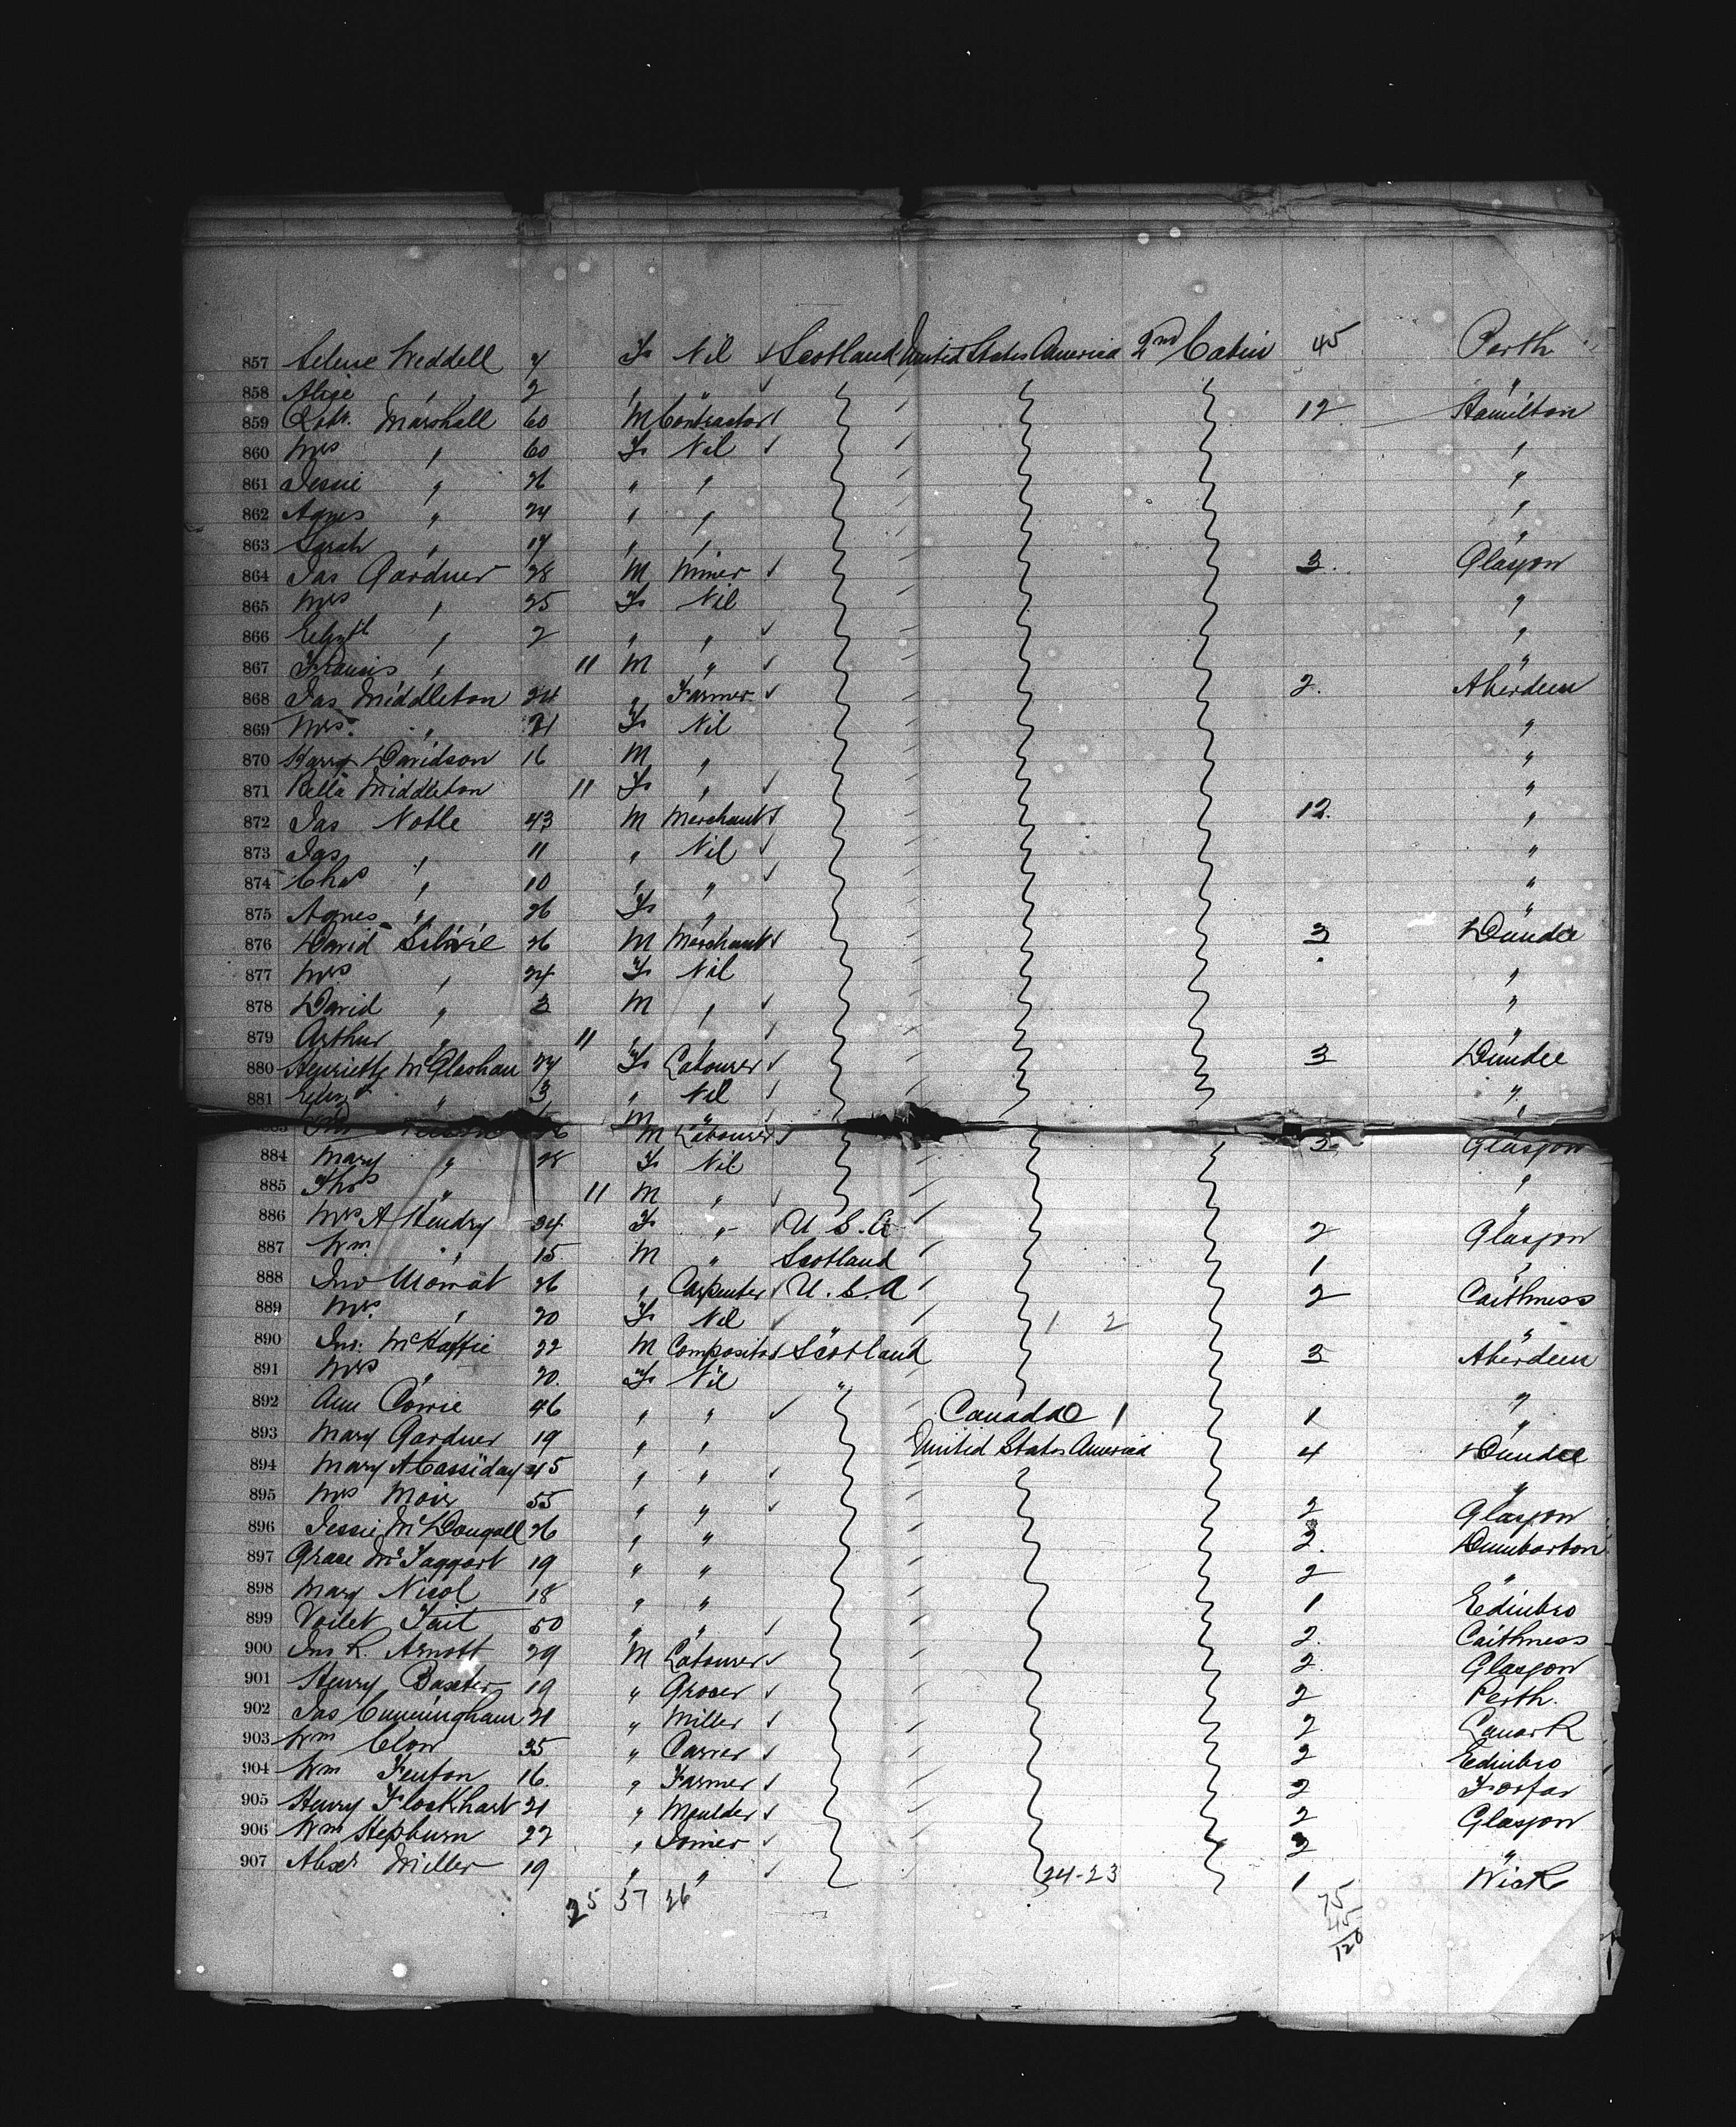 857 Selene Weddell 4 Fe Nil Scotland United States America 2nd Cabin 45 Perth
858 Alice " 2 " " "
859 Robt. Marshall 60 M Contractor 12 Hamilton
860 Mrs " 60 Fe Nil "
861 Jessie " 26 " " "
862 Agnes " 24 " " "
863 Sarah " 17 " " "
864 Jas Gardner 28 M Miner 3. Glasgow
865 Mrs " 25 Fe Nil "
866 " 2 " " "
867 Francis " 11 M " "
868 Jas Middleton 24 " Farmer 2. Aberdeen
869 Mrs. " 21 Fe Nil "
870 Harry Davidson 16 M " "
871 Bella Middleton 11 Fe " "
872 Jas Noble 43 M Merchant 12. "
873 Jas " 11 " Nil "
874 Chas " 10 " " "
875 Agnes " 26 Fe " "
876 David 26 M Merchant 3 Dundee
877 Mrs " 24 Fe Nil "
878 David " 3 M " "
879 Arthur " 11 " " "
880 Henrietta McGlashan 24 Fe Labourer 3 Dundee
881 Eliz " 3 " Nil "
M " "
883 26 M Labourer 2 Glasgow
884 Mary " 28 Fe Nil "
885 Thos " 11 M " "
886 Mrs A Hendry 34 Fe " U. S. A 2 Glasgow
887 Wm. " 15 M " Scotland 1 "
888 Jno Mowat 26 " Carpenter U. S. A 2 Caithness
889 Mrs. " 20 Fe Nil " 1 2 "
890 Jno. McHaffie 22 M Compositor Scotland 3 Aberdeen
891 Mrs " 20. Fe Nil " "
892 Ann Cowie 46 " " Canada 1 1 "
893 Mary Gardner 19 " " United States America 4 Dundee
894 Mary A Cassiday 45 " " "
895 Mrs Moir 55 " " 2 Glasgow
896 Jessie McDougall 26 " " 2. Dumbarton
897 Grace McTaggart 19 " " 2 "
898 Mary Nicol 18 " " 1 Edinbro
899 Voilet Tait 50 " " 2. Caithness
900 Jno R. Arnott 29 M Labourer 2. Glasgow
901 Henry Baxter 19 " Grocer 2 Perth.
902 Jas Cunningham 21 " Miller 2 Lanark
903 Wm Clow 35 " Carver 2 Edinbro
904 Wm Fenton 16. " Farmer 2 Forfar
905 Henry Flockhart 21 " Moulder 2 Glasgow
906 Wm Hepburn 22 " Joiner 2 "
907 Alexr Miller 19 " " 24-23 1 Wick
25 37 26 75
45
120